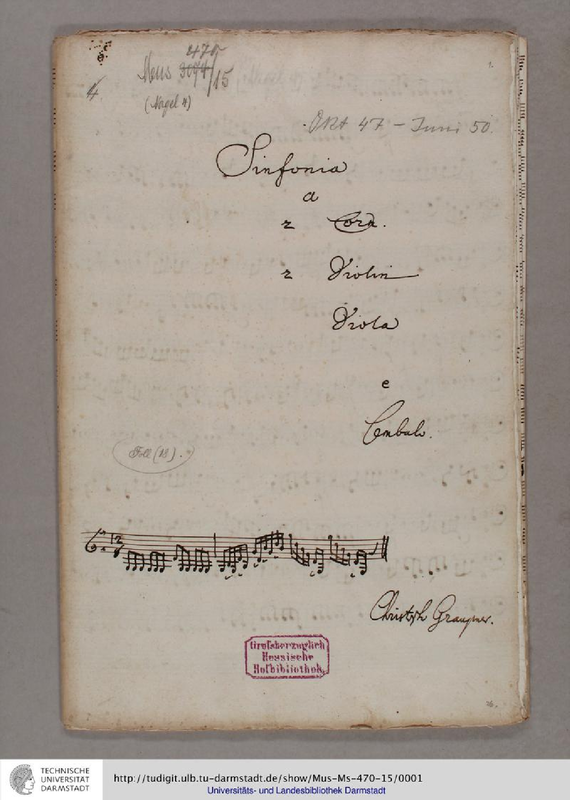 Mus 3074/15
470
4
(Nagel 4)
Okt 47 – Juni 50.
Sinfonia
a
2 Cord.
2 Violin
Viola
e
Cembalo.
12
8
Christoph Graupner.
Großherzoglich
Hessische
Hofbibliothek.
TECHNISCHE
UNIVERSITÄT
DARMSTADT
http://tudigit.ulb.tu-darmstadt.de/show/Mus-Ms-470-15/0001
Universitäts- und Landesbibliothek Darmstadt